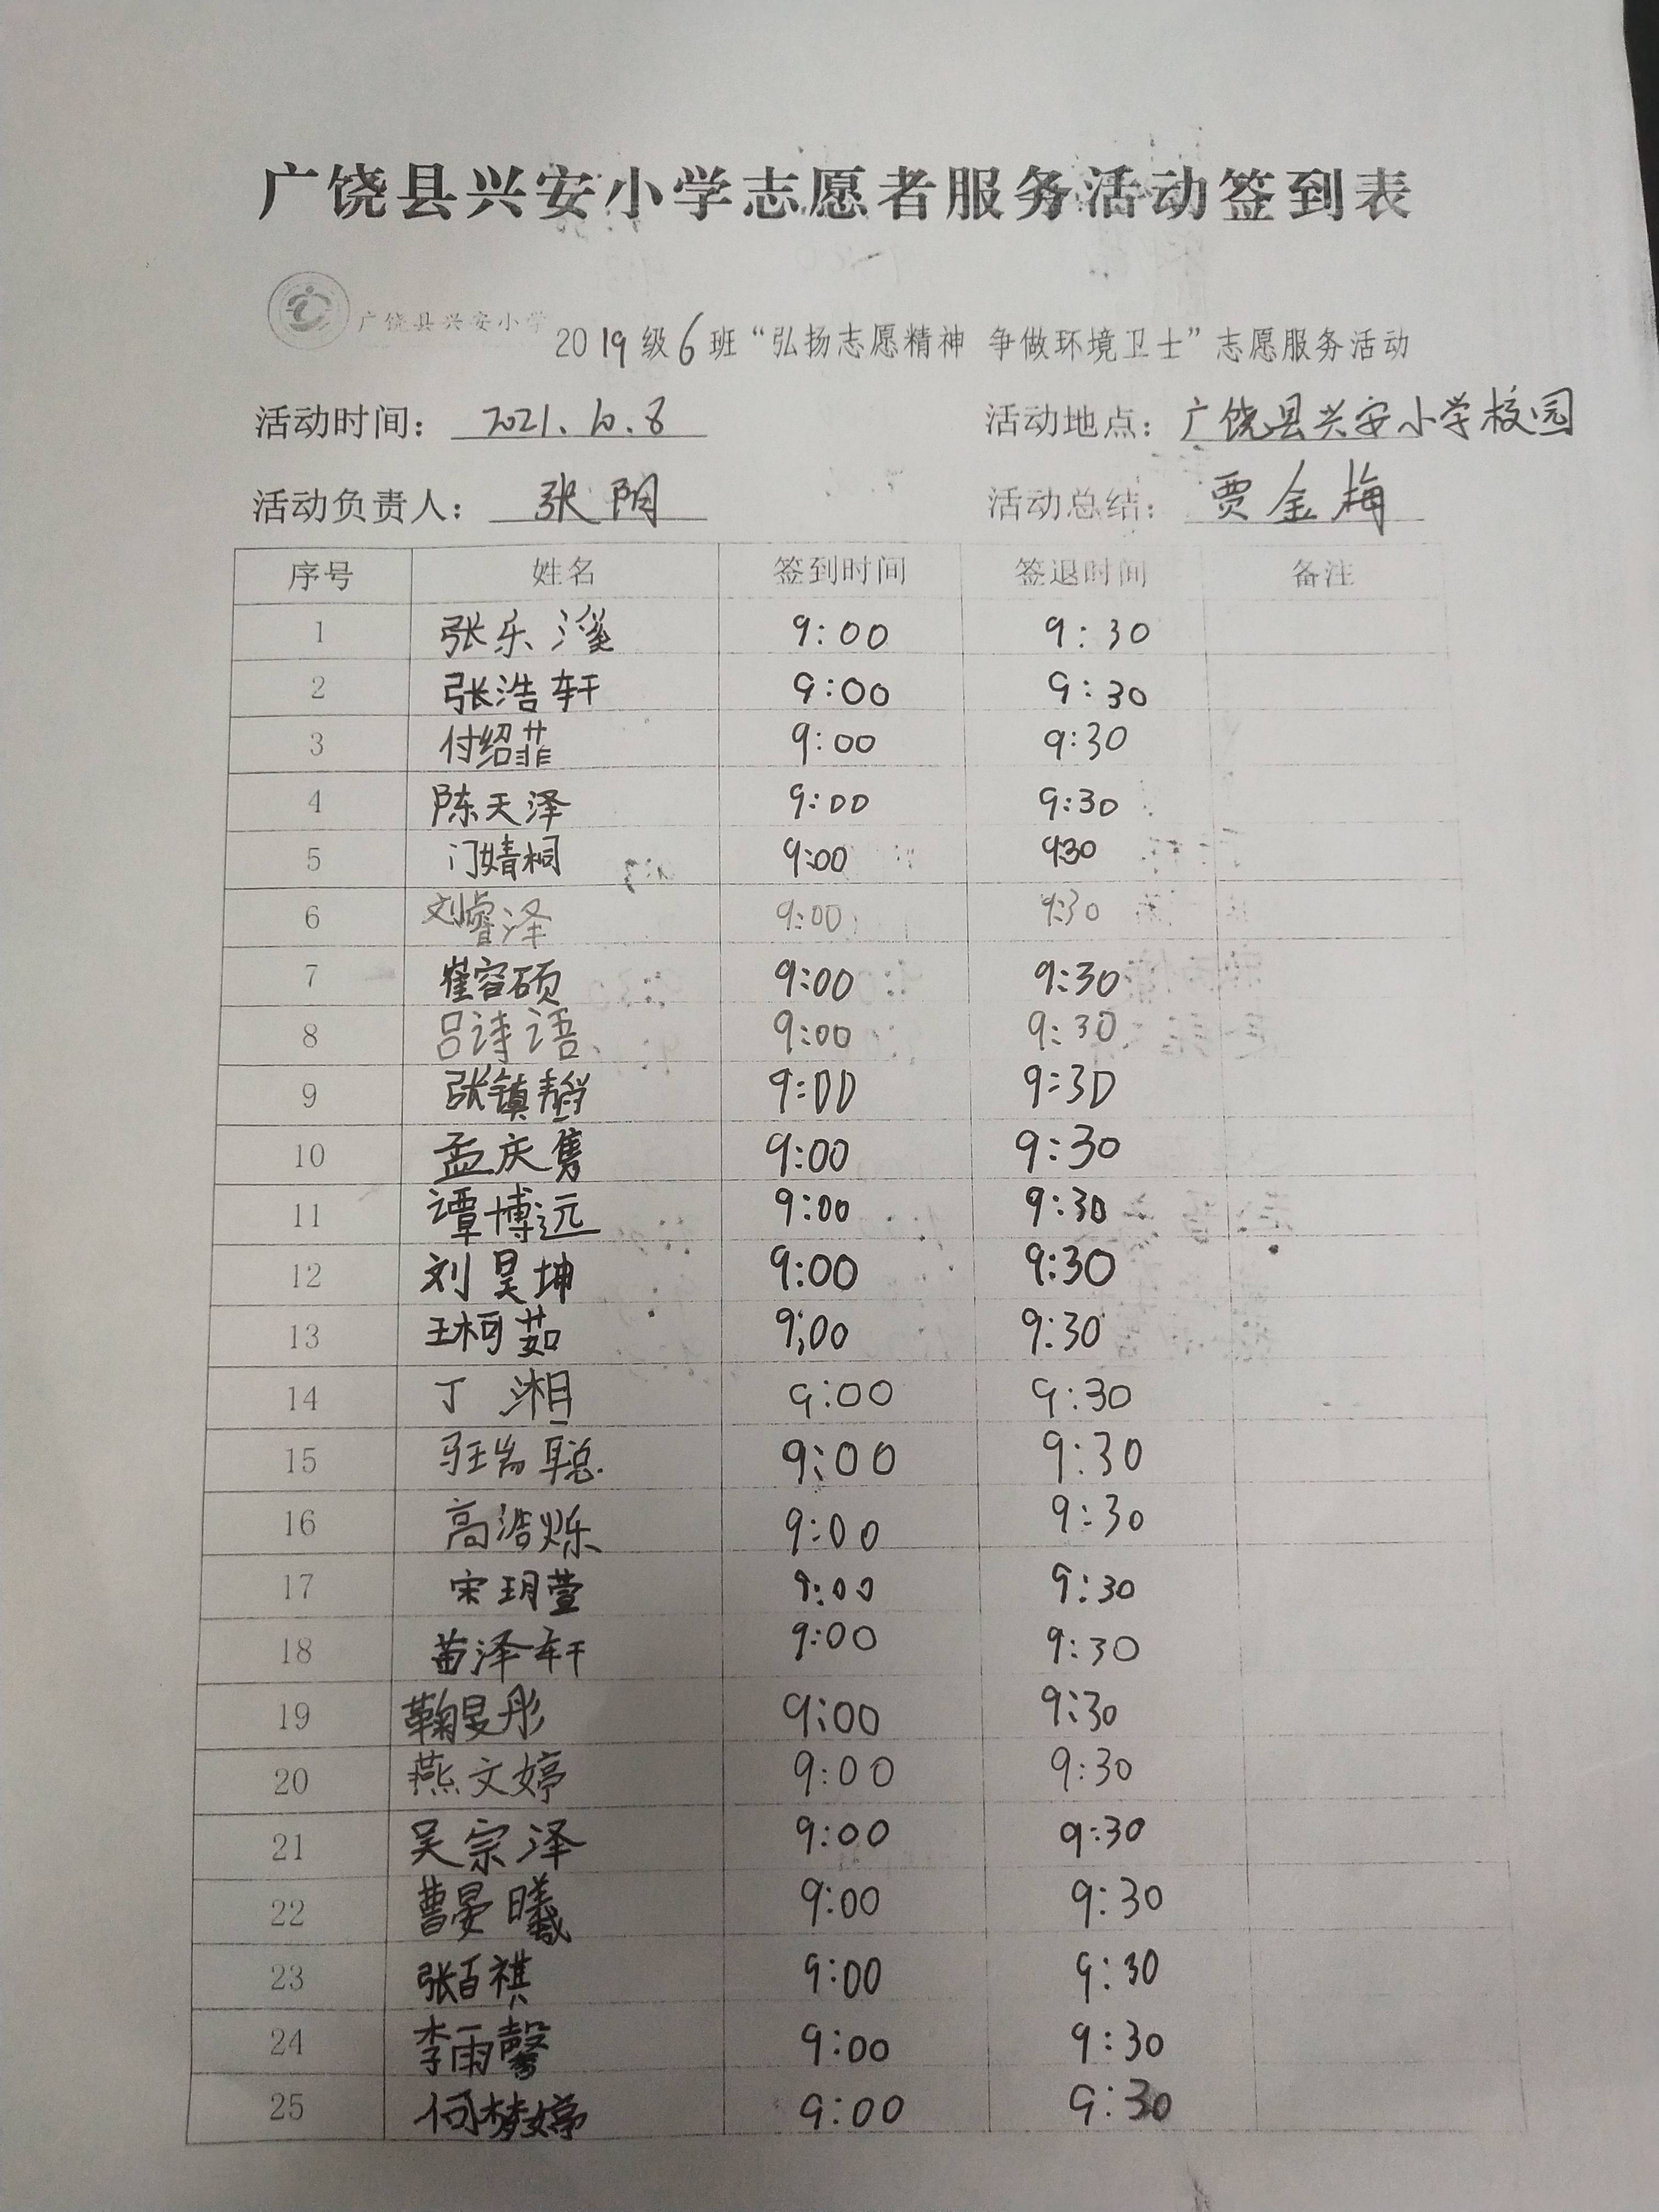 广饶县兴安小学志愿者服务活动签到表
广饶县兴安小学
2019级6班“弘扬志愿精神 争做环境卫士”志愿服务活动
活动时间: 2021.10.8 活动地点: 广饶县兴安小学校园
活动负责人: 张阴 活动总结: 贾金梅
序号 姓名 签到时间 签退时间 备注
1 张乐溪 9:00 9:30
2 张浩轩 9:00 9:30
3 付绍菲 9:00 9:30
4 陈天泽 9:00 9:30
5 门婧桐 9:00 9:30
6 刘睿泽 9:00 9:30
7 崔容硕 9:00 9:30
8 吕诗语 9:00 9:30
9 张镇韬 9:00 9:30
10 孟庆隽 9:00 9:30
11 谭博远 9:00 9:30
12 刘昊坤 9:00 9:30
13 王柯茹 9:00 9:30
14 丁湘 9:00 9:30
15 9:00 9:30
16 高浩烁 9:00 9:30
17 宋玥萱 9:00 9:30
18 苗泽轩 9:00 9:30
19 鞠旻彤 9:00 9:30
20 燕文婷 9:00 9:30
21 吴宗泽 9:00 9:30
22 曹晏曦 9:00 9:30
23 张百祺 9:00 9:30
24 李雨馨 9:00 9:30
25 何梦婷 9:00 9:30